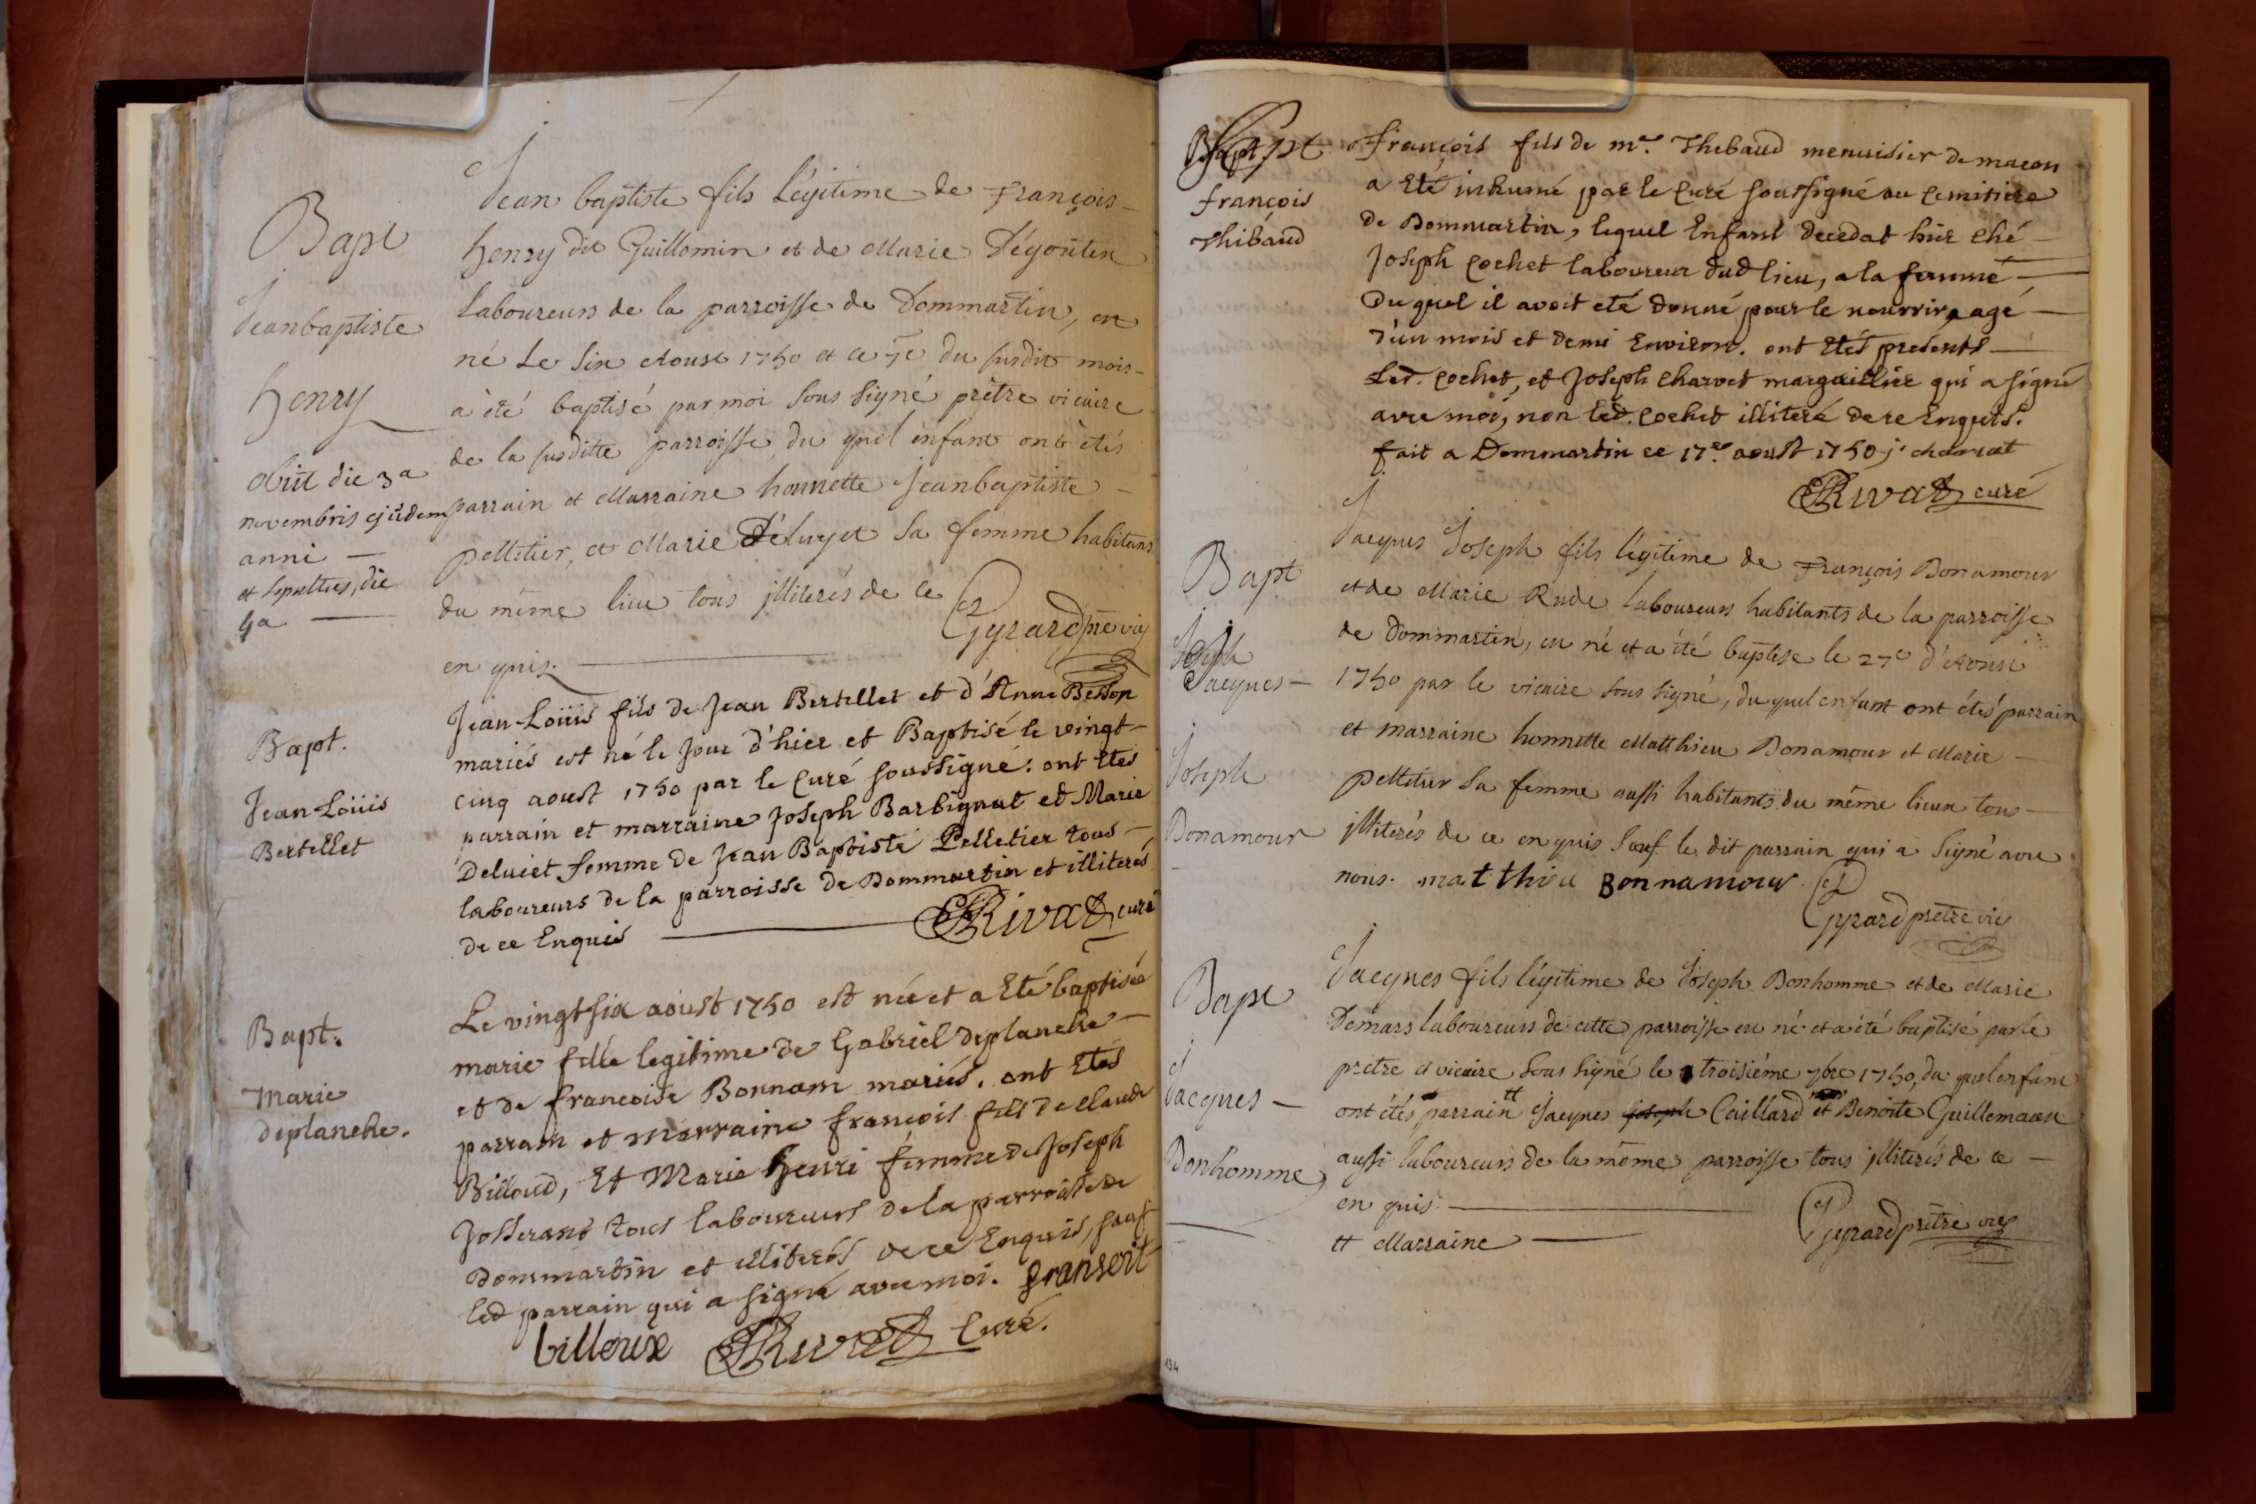 Bapt
Jeanbaptiste
henry
obiit die 3a
novembris ejusdem
anni
et sepultus, die
4a
Jean baptiste fils Légitime de François
henry dit Guillomin et de Marie
Laboureurs de la parroisse de Dommartin, en
né Le six Aoust 1750 et ce 7e du susdit mois
a été baptisé par moi sous signé prêtre vicaire
de la susditte parroisse, du quel enfant ont étés
parrain et Marraine honnette Jeanbaptiste
pelletier, et Marie Déluyet sa femme habitans
du même lieu tous illiterés de ce
en quis.
Gyrard pre vic
Bapt.
Jean-Loüis
Bertellet
Jean-Loüis fils de Jean Bertellet et d'Anne Besson
mariés est né le jour d'hier et Baptisé le vingt-
cinq aoust 1750 par le curé soussigné: ont Etés
parrain et marraine Joseph Barbignat et Marie
Deluiet femme de Jean Baptiste Pelletier tous
laboureurs de la parroisse de Dommartin et illiterés
de ce Enquis
Rivat curé
Bapt.
Marie
deplanche.
Le vingt six aoust 1750 est née et a Eté baptisée
marie fille legitime de Gabriel deplanche
et de francoise Bonnam mariés. ont Etés
parrain et marraine françois fils de claude
Billoud, Et Marie henri femme de Joseph
Josserand tous laboureurs de la parroisse de
Dommartin et illiterés de ce Enquis, sauf
led parrain qui a signé avec moi. fransoit
billoux Rivat Curé.
françois
Thibaud
françois fils de mr. Thebaud menuisier de macon
a Eté inhumé par le curé soussigné au cemitiere
de Dommartin, lequel Enfant decedat hier ché
Joseph cochet laboureur dud lieu, a la femme
Du quel il avoit eté donné pour le nourrir, agé
d'un mois et demi Environ. ont Etés presents
Led. cochet, et Joseph charvet marguillier qui a signé
avec moi, non led. cochet illiteré de ce Enquis.
fait a Dommartin ce 17e. aoust 1750 j. charvat
Rivat curé
Bapt
Jacques
Joseph
Bonamour
Jacques Joseph fils légitime de François Bonamour
et de Marie Rude laboureurs habitants de la parroisse
de Dommartin, en né et a été baptise le 27e d'Aoust
1750 par le vicaire sous signé, du quel enfant ont étés parrain
et marraine honnette Matthieu Bonamour et Marie
pelletier sa femme aussi habitants du même lieux tous
illiterés de ce en quis sauf le dit parrain qui a signé avec
nous. matthieu Bonnamour.
Gyrard prêtre vic
Bapt
Jacques
Bonhomme
Jacques fils légitime de Joseph Bonhomme et de Marie
Démars laboureurs de cette parroisse en né et a été baptisé par le
pretre et vicaire sous signé le troisiéme 7bre 1750, du quel enfant
ont étés parrain tt Jacques joseph Caillard et Benoite Guillemaau
aussi laboureurs de la même parroisse tous illiterés de ce
en quis
tt Marraine
Gyrard prêtre vic
134